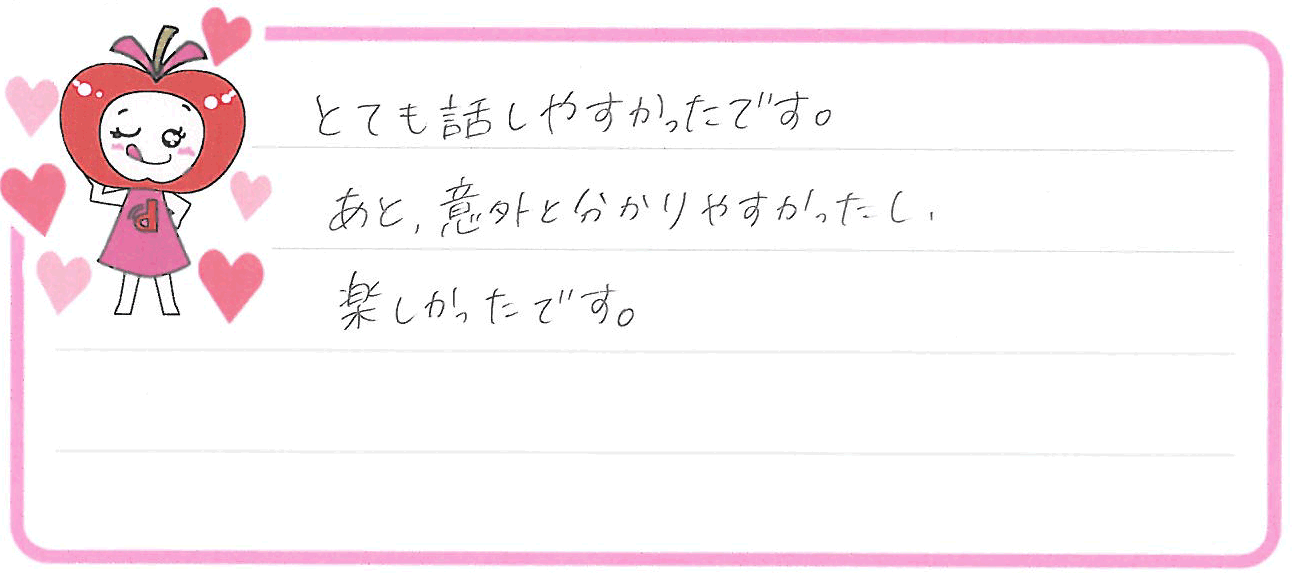 とても話しやすかったです。
あと、意外と分かりやすかったし、
楽しかったです。
d